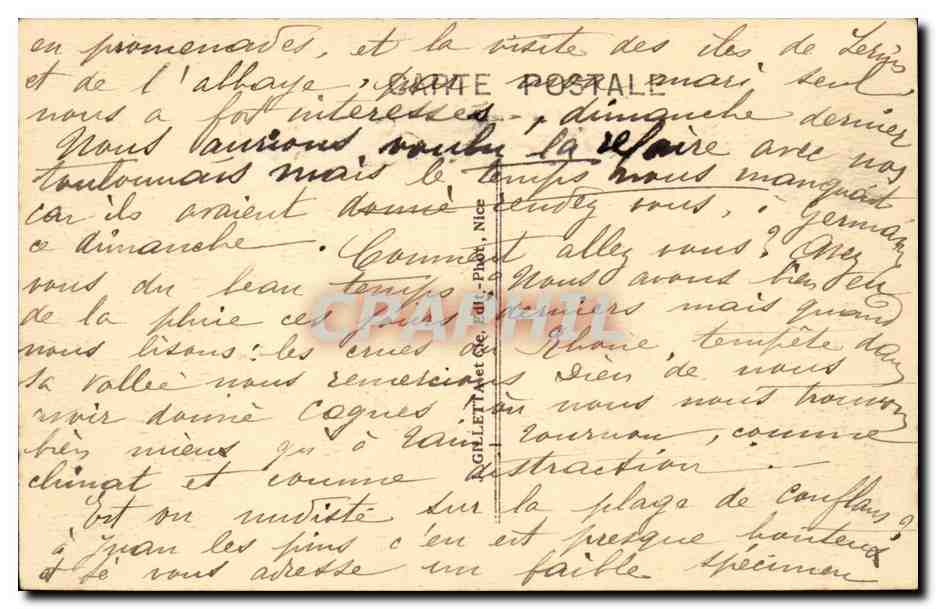 en promenades, et la visite des îles de Lerins
et de l'abbaye, par mon mari seul
CARTE POSTALE
nous a fort interessés -, dimanche dernier
Nous aurions voulu la refaire avec nos
toulonnais mais le temps nous manquait
car ils avaient donné rendez vous, à Germaine
ce dimanche. Comment allez vous? Avez
vous du beau temps? Nous avons bien eu
de la pluie ces jours derniers mais quand
nous lisons: les crues du Rhône, tempête dans
la vallée nous remercions Dieu de nous
avoir donné Cagnes où nous nous trouvons
bien mieux qu'à Tain, Tournon, comme
climat et comme distraction. -
Est on nudiste sur la plage de Conflans?
à Juan les pins c'en est presque honteux
et je vous adresse un faible spécimen
GILLETTA et Cie, Edit.-Phot., Nice
CPAPHIL